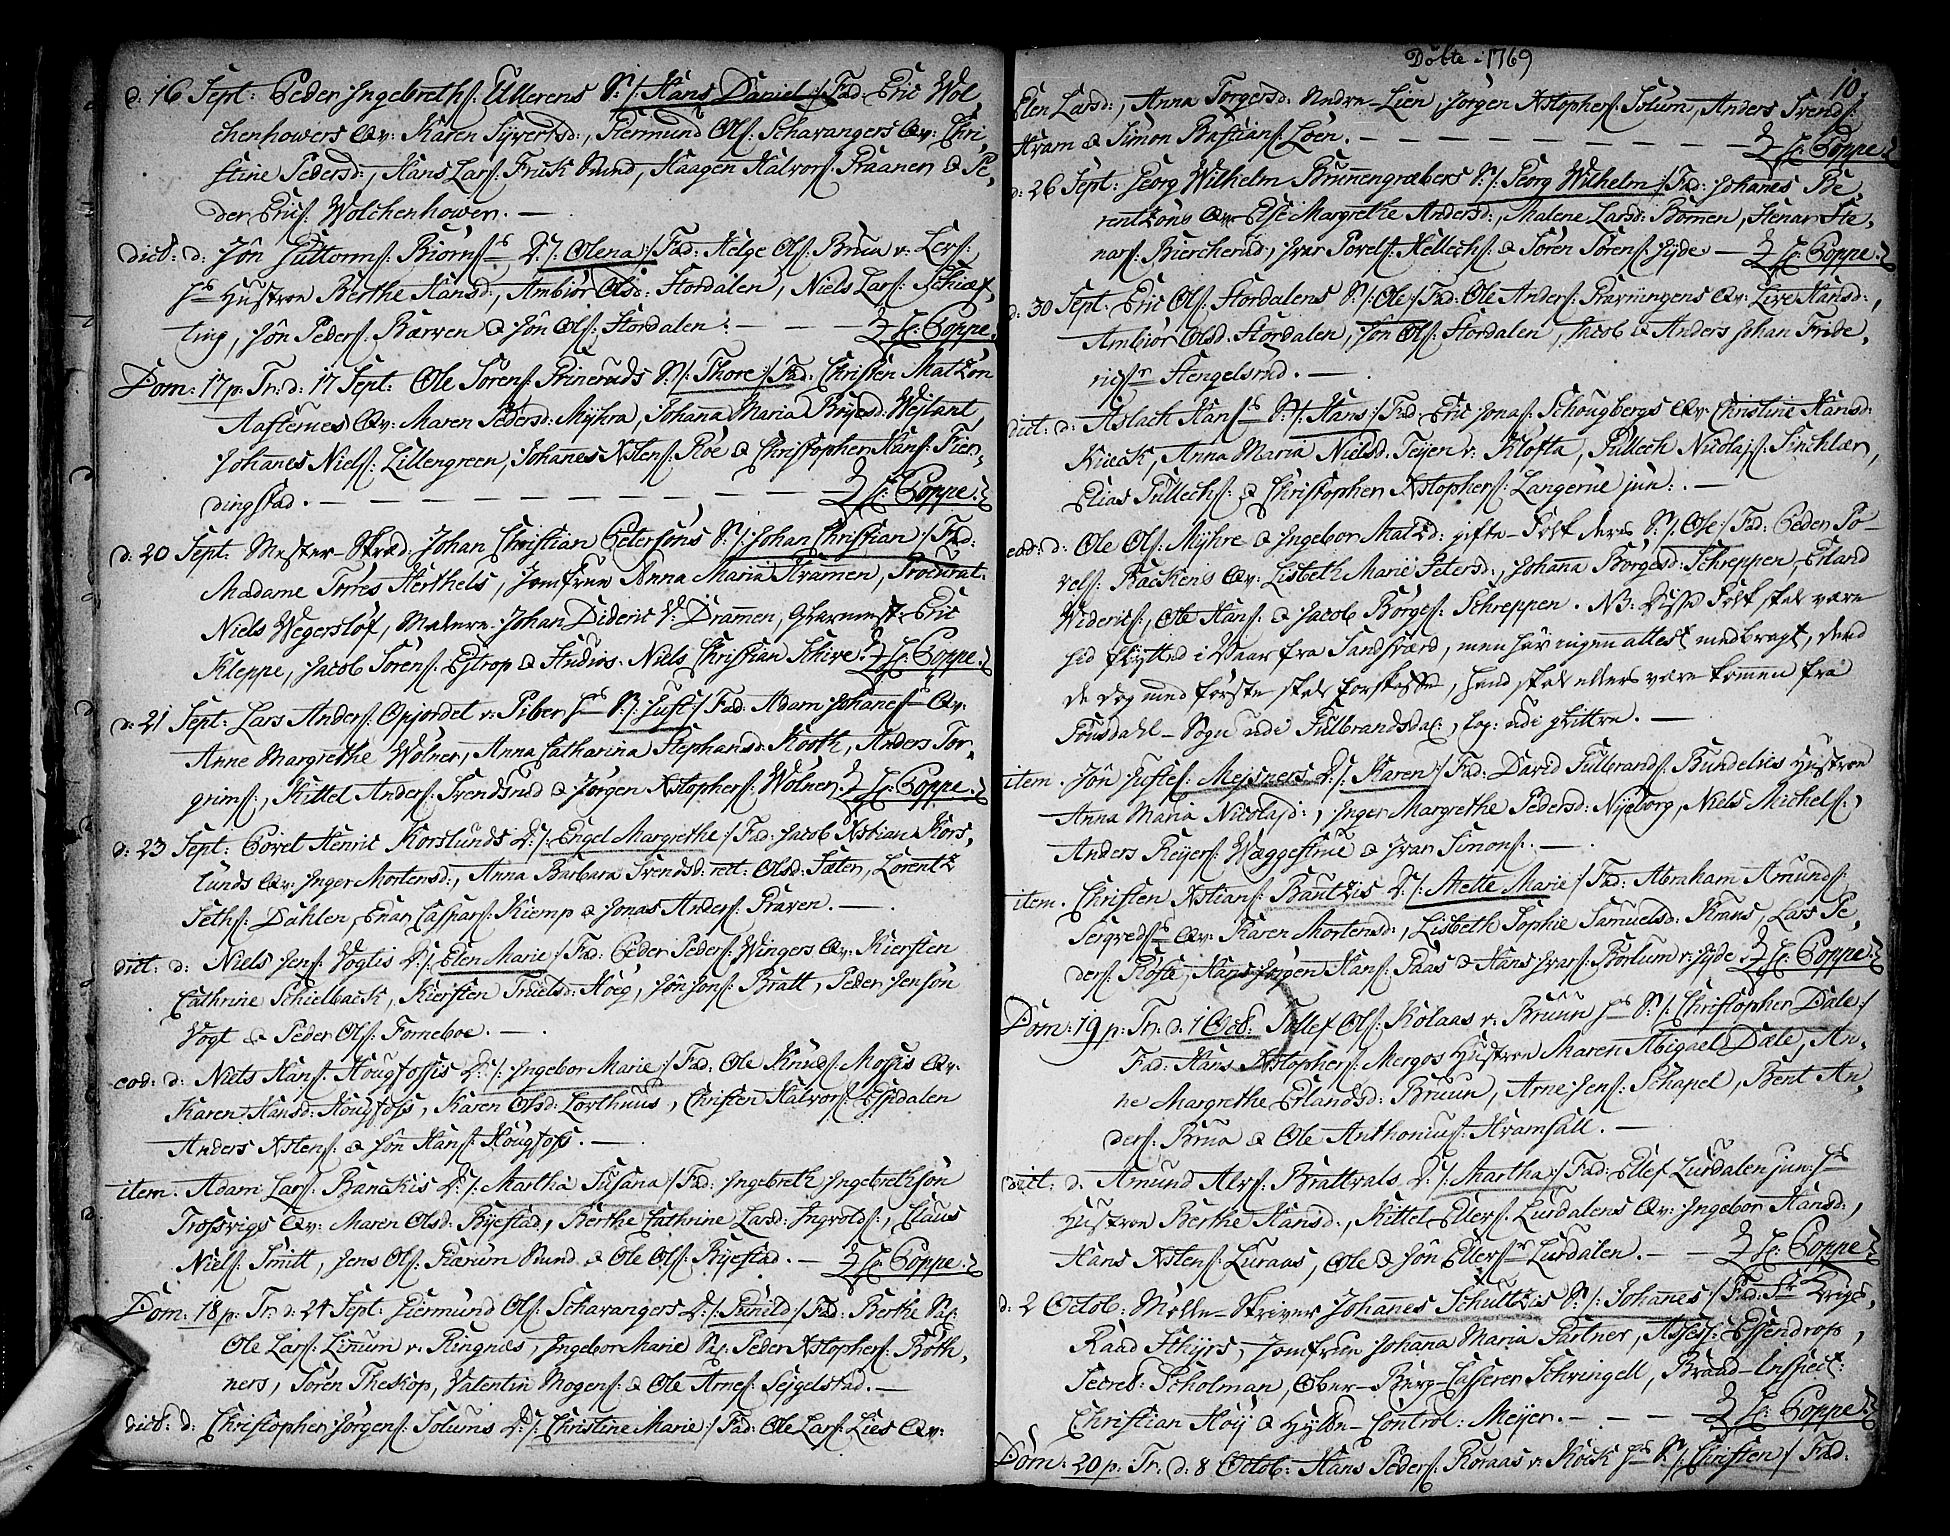 d. 16 Sept: Peder Ingebreths: Ullerens S. /: Hans Daniel :/ Fad: Eric Wol,
chenhowers Qv: Karen Syversd:, Giermund Ols: Schavangers Qv: Chri,
stine Pedersd:, Hans Lars: Frick Haagen Halvors: Praanen & Pe,
der Erics: Wolchenhower. —
dict: d: Jôn Guttorms: Biørns: D. /: Olena :/ Fad: Helge Ols: Brua v. Lers:
Hustrue Berthe Hansd:, Ambiør Olsd: Stordalen, Niels Lars: Schief,
ting, Jôn Peders: Bærven & Jôn Ols: Stordalen. — — — Coppe.
Dom: 17 p: Tr: d: 17 Sept: Ole Sørens: S. /: Thore :/ Fad: Christen Matzon
Aasternes Qv: Maren Pedersd: Myhra, Johana Maria Weilant,
Johanes Niels: Lillengreen, Johanes Xstens: Roe & Christopher Hans: Fier,
dingstad. — — — Coppe.
d. 20 Sept: Mester-Skræd: Johan Christian Petersôns S. /: Johan Christian :/ Fad:
Madame Torres Herthels, Jomfrue Anna Maria Kramen, Procurat:
Niels Wegersløf, Johan Dideric V: Dramen, Eric
Kleppe, Jacob Sørens: Estrop & Studios. Niels Christian Schive. Coppe.
d. 21 Sept: Lars Anders: Opjordet v. Piber S. /: Just :/ Fad: Adam Johanes: Qv:
Anne Margrethe Wølner, Anna Catharina Stephansd: Kooth, Anders Tor,
grims:, Kittel Anders: Svendsrud & Jørgen Xstophers: Wølner. Coppe.
d. 23 Sept: Povel Henric Korslunds D. /: Engel Margrethe :/ Fad: Jacob Xstian Kors,
lunds Qv: Inger Mortensd:, Anna Barbara Svendsd: Olsd: Sæter, Lorentz
Seths: Dahlen, Enar Caspars: Kiemp & Jonas Anders: Praven. —
dict: d: Niels Jens: Vogtis D. /: Elen Marie :/ Fad: Peder Peders: Wingers Qv: Kiersten
Cathrine Schielback, Kiersten Truelsd: Høeg, Jôn Jons: Bratt, Peder Jensôn
Vogt & Peder Ols: Forneboe. —
eod: d: Niels Hans: Hougfossis D. /: Ingebor Marie :/ Fad: Ole Knuds: Mossis Qv:
Karen Hansd: Hougfoss, Karen Olsd: Lorthuus, Christen Halvors: Essdalen
Anders Xstens: & Jôn Hans: Hougfoss. —
item. Adam Lars: Banckis D. /: Martha Susana :/ Fad: Ingebreth Ingebrethsôn
Trossvigs Qv: Maren Olsd: Ryestad, Berthe Cathrine Larsd: Ingvolds:, Claus
Niels: Smitt, Jens Ols: & Ole Ols: Ryestad. — Coppe.
Dom: 18 p: Tr: d: 24 Sept: Giermund Ols: Schavangers D. /: Gunild :/ Fad: Berthe
Ole Lars: Linum v. Ringnæs, Ingebor Marie Peder Xstophers: Bøth,
ners, Søren Theskop, Valentin Mogens: & Ole Arnes: Sejgelstad. —
dict: d: Christopher Jørgens: Solums D. /: Christine Marie :/ Fad: Ole Lars: Lies Qv:
Døbte i 1769
10.
Elen Larsd:, Anna Torgersd: Nndre-Lien, Jørgen Xstophers: Solum, Anders Svends:
Kram & Simon Bastians: Loen. — — — Coppe.
d: 26 Sept: Georg Wilhelm Brunnengræbers S. /: Georg Wilhelm :/ Fad: Johanes Be,
rentzôns Qv: Else Margrethe Andersd:, Malene Larsd: Bømen, Stenar Ste,
nars: Biercherud, Ivar Povels: Kellech: & Søren Sørens: Hyde — Coppe.
d: 30 Sept: Eric Ols: Stordalens S. /: Ole :/ Fad: Ole Anders: Qv: Live Hansd:,
Ambiør Olsd: Stordalen, Jôn Ols: Stordalen, Jacob & Anders Johan Fride,
rics: Stengelsrud. —
dict: d: Aslach Hans: S. /: Hans :/ Fad: Eric Jonas: Schougbergs Qv: Christine Hansd:
Kieck, Anna Maria Nielsd. Teyen v. Klofta, Gullech Nicolajs: Sinchlær,
Elias Gullechs: & Christopher Xstophers: Langerue jun: —
eod: d: Ole Ols: Myhre & Ingebor Matzd: gifte Folk deres S. /: Ole :/ Fad: Peder Po-
vels: Backens Qv: Lisbeth Marie Petersd:, Johana Børgesd: Schreppen, Erland
Wideries:, Ole Hans: & Jacob Børges: Schreppen. NB: Disse Folk skal være
hid flytted i Vaar fra Sandsværd, men har ingen attest medbragt,
de dog med første skal forskaffe, skal ellers være kommen fra
Fonsdahl Sogn udi Gulbrandsdal:, —
item. Jôn Justes: Mejsners D. /: Karen :/ Fad: David Gulbrands: Bundelies Hustrue
Anna Maria Nicolajd:, Inger Margrethe Pedersd: Nyeborg, Niels Michels:,
Anders Reyers: Wæggestrue & Ivar Simons: —
item. Christen Xstians: Bautzis D. /: Mette Marie :/ Fad: Abraham Amunds:
Seigreds: Qv: Karen Mortensd:, Lisbeth Sophie Samuelsd: Krans, Lars Pe,
ders: Kløfte, Hans Jørgen Hans: Paas & Hans Ivars: Borlum v. Hyde. Coppe.
Dom: 19 p: Tr: d. 1 Octb: Tollef Ols: Kolaas v: Bruun S. /: Christopher Dæle :/
Fad: Hans Xstophers: Mergos Hustrue Maren Abigael Dæle, An,
ne Margrethe Erlandsd: Bruun, Arne Jens: Schapel, Bent An,
ders: Brua & Ole Anthonius: Kramfall. —
dict: d. Amund Alvs: Brattvals D. /: Martha :/ Fad: Ellef Lurdalen jun:
Hustrue Berthe Hansd:, Kittel Ellefs: Lurdalens Qv: Ingebor Hansd:,
Hans Xstens: Luraas, Ole & Jôn Ellefs: Lurdalen. — — Coppe.
d: 2 Octob: Mølle-Skriver Johannes Schultzis S. /: Johanes :/ Fad: Hr. Krigs,
Raad Jomfrue Johana Maria Partner, Assess: Essendrop,
Secret: Scholman, Ober-Berg-Casserer Schringell, Braad-Inspect:
Christian Høij & Hytte-Control: Meyer. — — Coppe.
Dom: 20 p: Tr: d: 8 Octob: Hans Peders: Roraas v. Kock S. /: Christen :/ Fad: